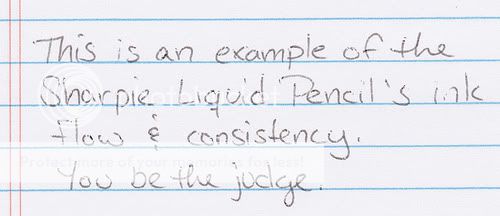 This is an example of the
Sharpie Liquid Pencil's ink
flow & consistency.
Protect more of your memories for less!
You be the judge.